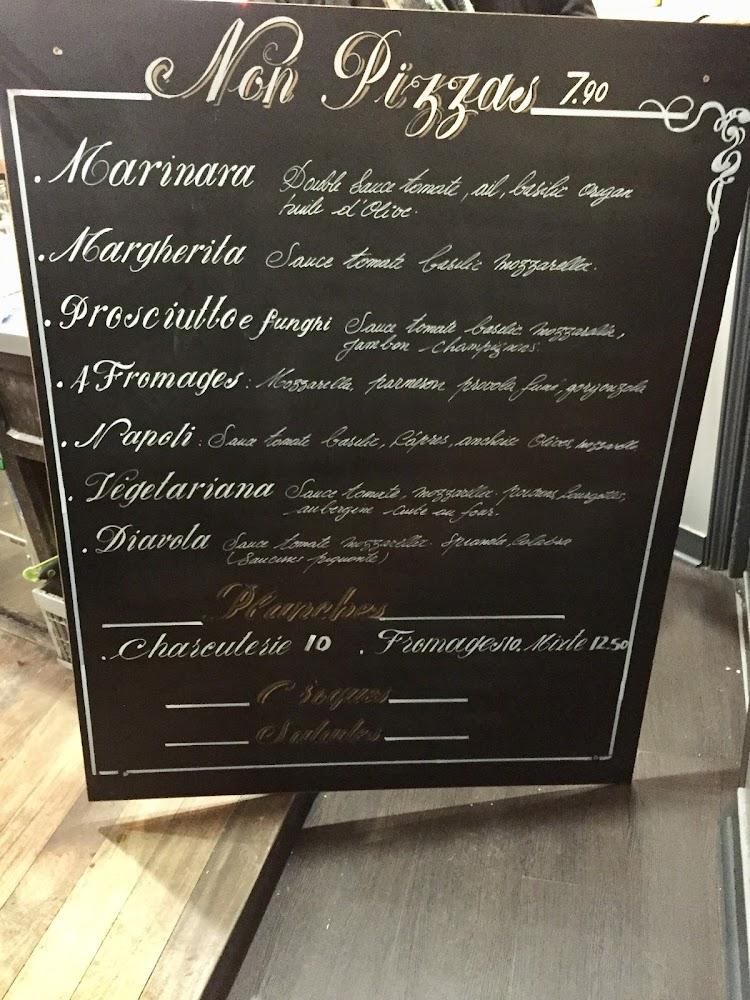 Non Pizzas 7.90
. Marinara Double Sauce tomate, ail, basilic origan
huile d'Olive.
. Margherita Sauce tomate basilic mozzarella.
. Prosciutto e funghi Sauce tomate basilic mozzarella,
jambon champignons.
. 4 Fromages : Mozzarella, parmesan provola fumé, gorgonzola
. Napoli : Sauce tomate basilic, Câpres, anchois Olives, mozzarella
. Végétariana Sauce tomate, mozzarella poivrons, Courgettes,
aubergine cuite au four.
. Diavola Sauce tomate mozzarella Spianata Calabra
(Saucisse piquante)
Planches
. Charcuterie 10 . Fromages 10. Mixte 12.50
Croques
Salades